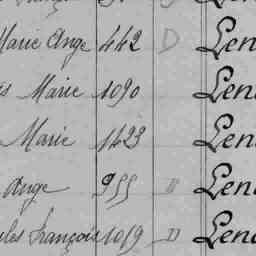 Marie Ange 442 D Len
Marie 1090 Len
Marie 1423 Len
Ange 955 " Len
François 1019 D Len